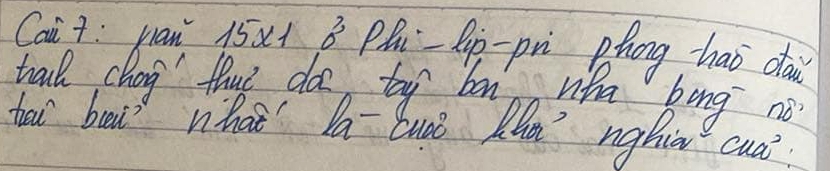 Câu 7: năm 15x1 ở Phi-líp-pin phong trào đấu
tranh chống thực dân tây ban nha bùng nổ
tiêu biểu nhất là cuộc khởi nghĩa của: